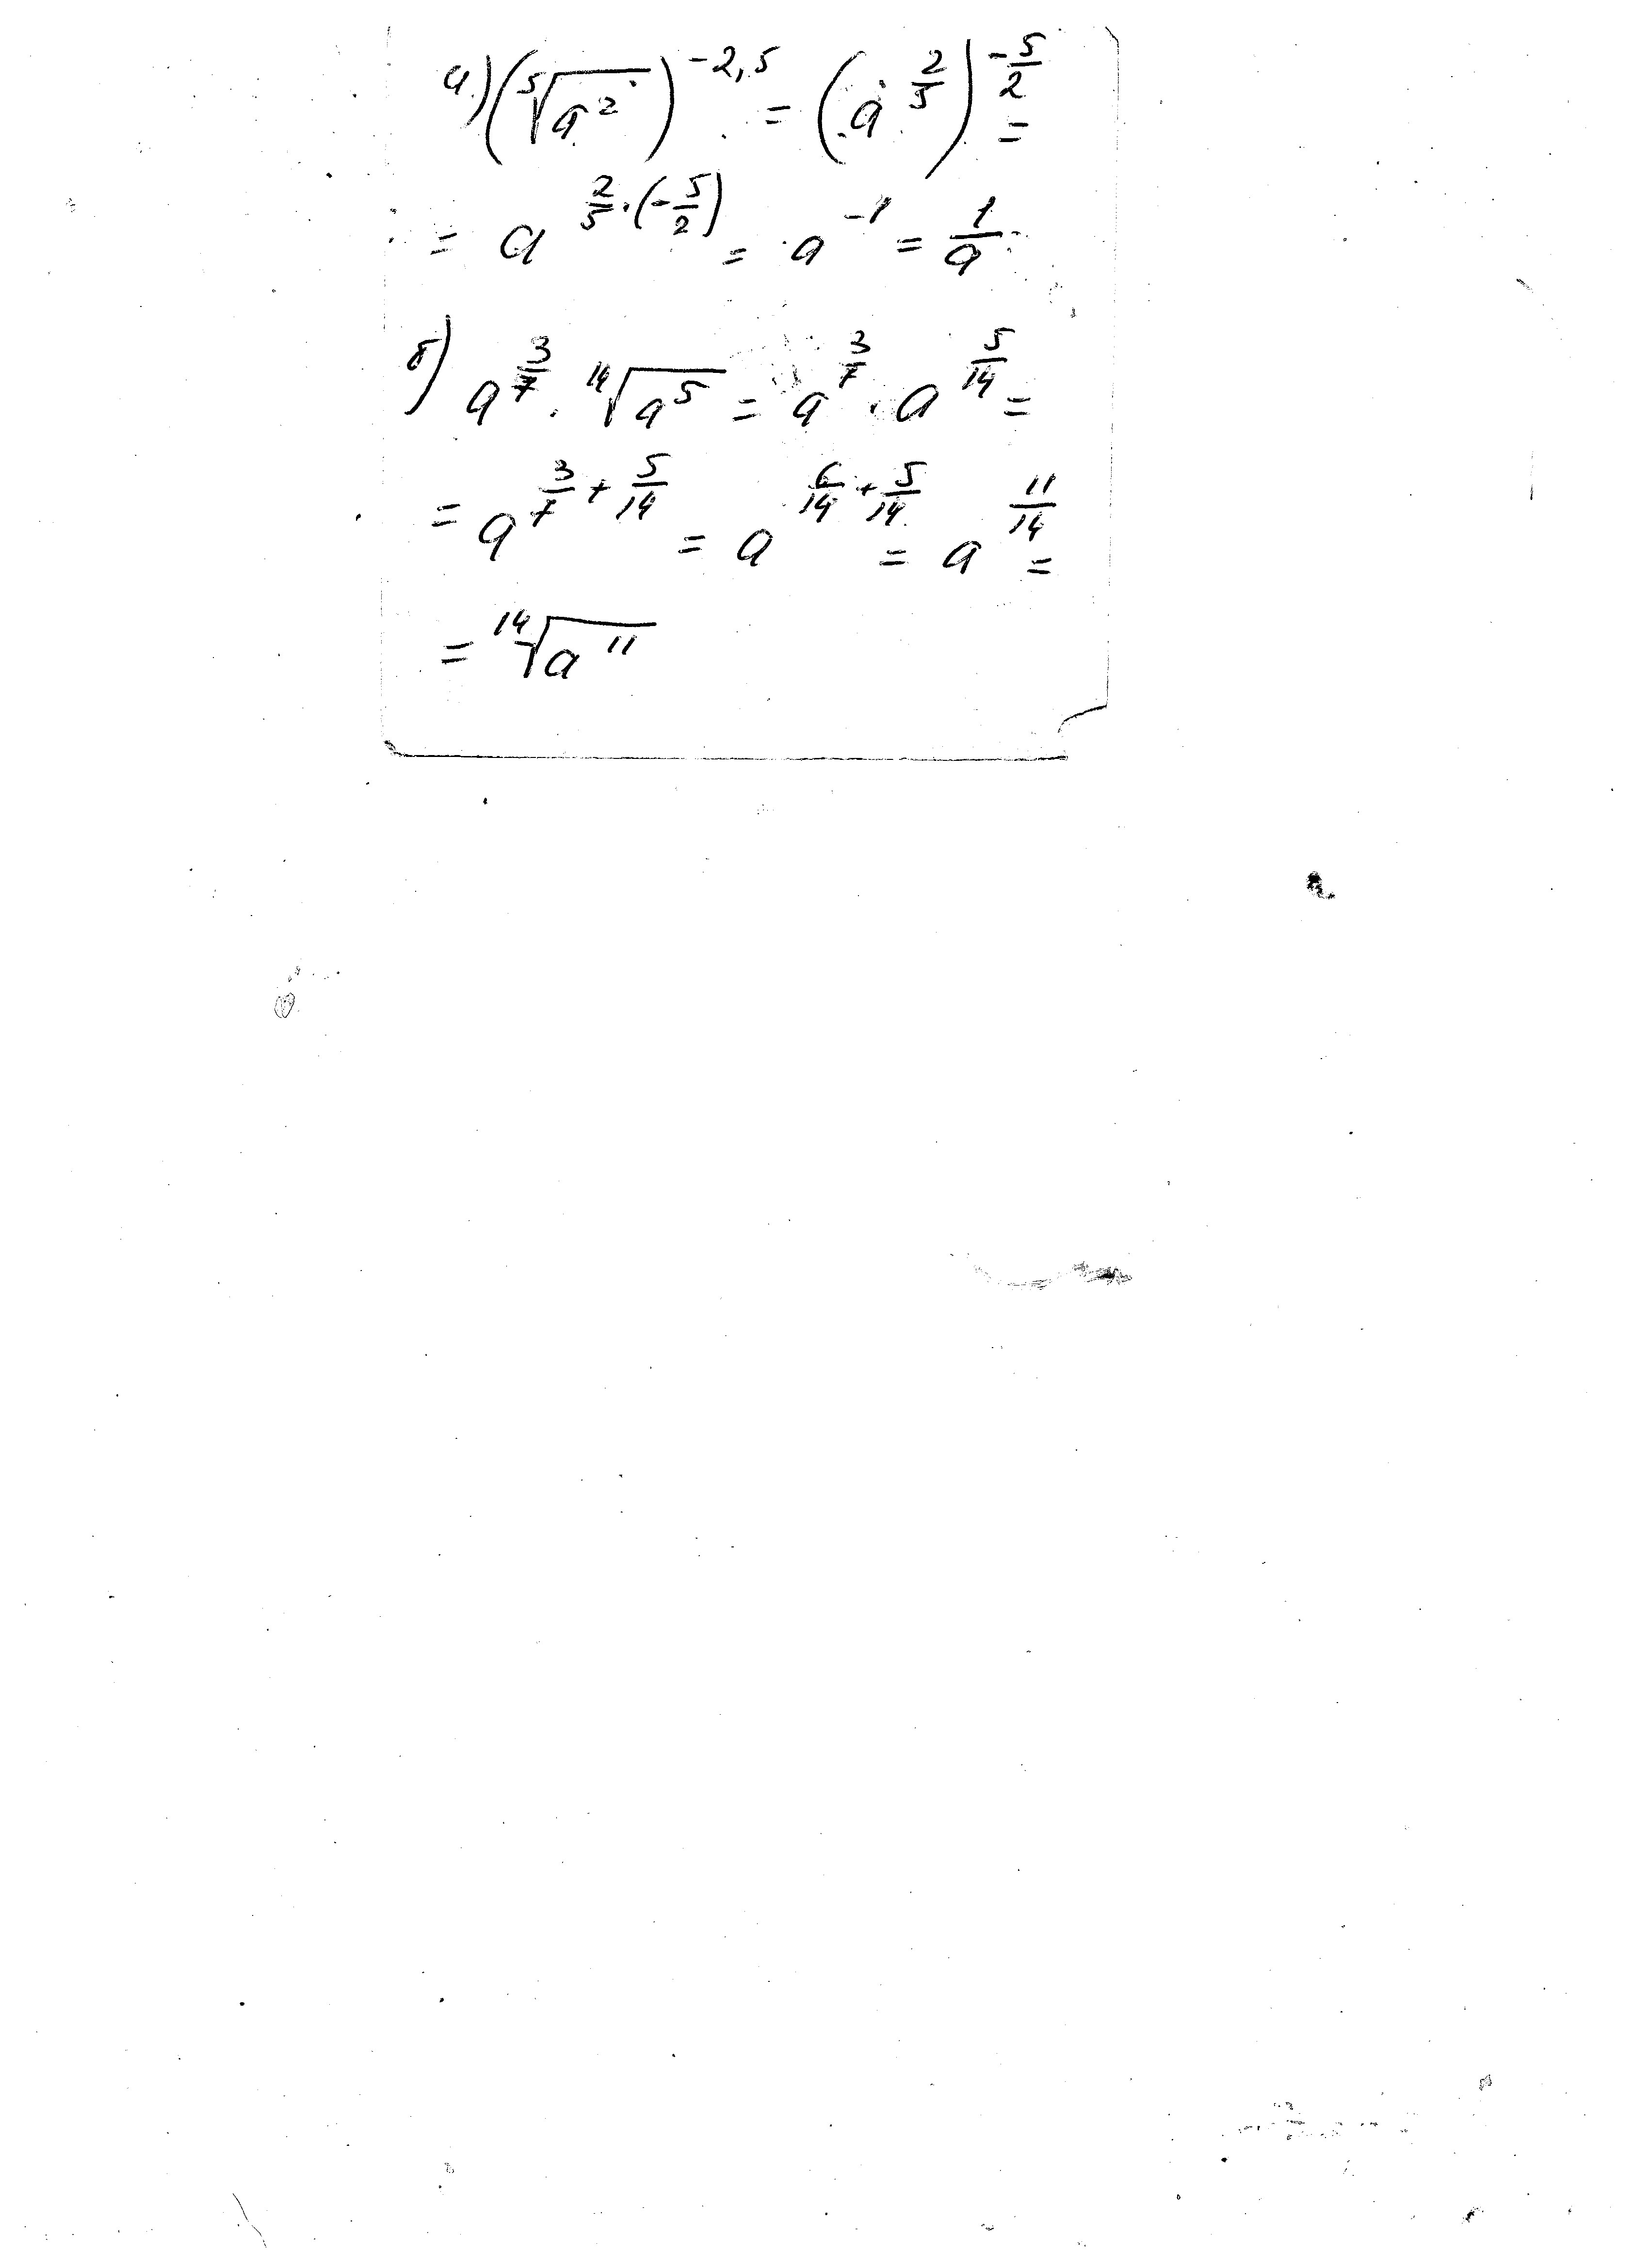 а) (⁵√a²)^(-2,5) = (a^(2/5))^(-5/2) =
= a^(2/5 · (-5/2)) = a^(-1) = 1/a
б) a^(3/7) · ¹⁴√a⁵ = a^(3/7) · a^(5/14) =
= a^(3/7 + 5/14) = a^(6/14 + 5/14) = a^(11/14) =
= ¹⁴√a¹¹